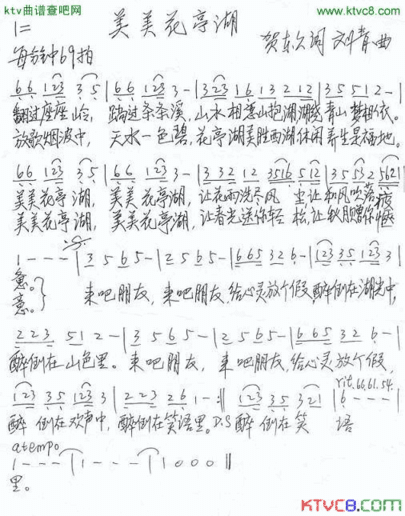 ktv曲谱查吧网
www.ktvc8.com
1= 美美花亭湖
每分钟69拍
贺东久词 刘青曲
6 6 1 2 3 3 5 | 6 6 1 2 3 3 - | 3 2 3 1 6 1 3 2 1 2 | 3 5 1 5 5 1 2 - |
翻过座座山岭, 踏过条条溪, 山水相恋山抱湖湖绕青山梦相依。
放歌烟波中, 天水一色碧, 花亭湖美胜西湖休闲养生是福地。
6 6 1 2 3 3 5 | 6 6 1 2 3 3 - | 3 3 2 1 2 3 5 1 6 5 1 2 | 3 5 5 3 2 5 6 2 1 |
美美花亭湖, 美美花亭湖, 让花雨洗尽风尘让和风吹落疲
美美花亭湖, 美美花亭湖, 让春光送你轻松, 让秋月赠你惬
1 - - - | 3 5 6 5 - | 2 5 6 5 - | 6 6 5 3 2 6 - | 1 2 3 3 5 1 2 3 3 |
惫。 来吧朋友, 来吧朋友, 给心灵放个假, 醉倒在湖光中,
意。
2 2 3 5 1 2 - | 3 5 6 5 - | 2 5 6 5 - | 6 6 5 3 2 6 - |
醉倒在山色里。 来吧朋友, 来吧朋友, 给心灵放个假,
1 2 3 3 5 1 2 3 3 | 2 2 3 2 6 1 - - :‖ 1 2 3 3 5 3 2 1 | rit. 6 6. 6 1. 5 4. 6 - - - - |
醉倒在欢声中, 醉倒在笑语里。D.S 醉倒在笑 语
atempo
1 - - - | 1 - - - | 1 0 0 0 ‖
里。
KTVC8.com